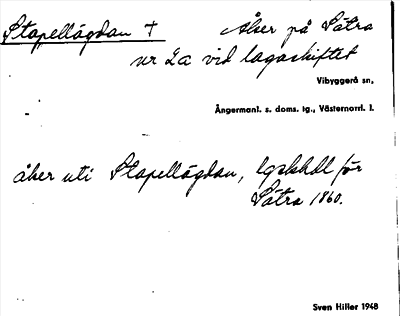 Stapellägdan † Åker på Sätra
nr 2a vid lagaskiftet
Vibyggerå sn,
Ångermanl. s. doms. tg., Västernorrl. l.
åker uti Stapellägdan, lgskhdl för
Sätra 1860.
Sven Hiller 1948